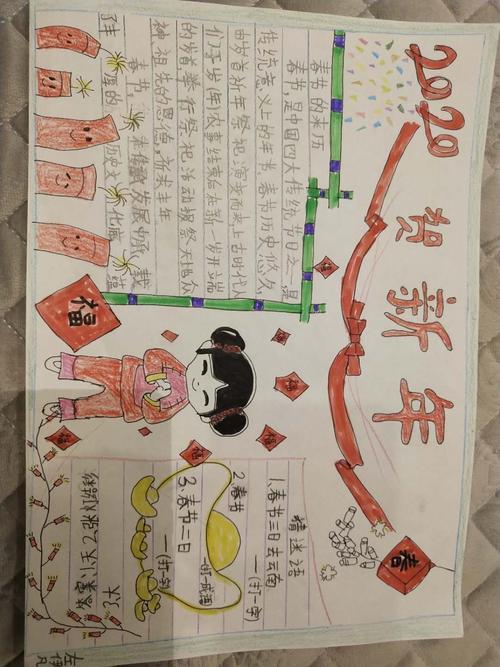 2020
贺新年
春节的来历
春节,是中国四大传统节日之一,是
传统意义上的年节,春节历史悠久,
由岁首祈年祭祀演变而来上古时代人
们于岁年农事结束后在新一岁开端
的岁首举行祭祀活动报祭天地众
神、祖先的恩德、祈求丰年
春节 在传承发展中承载
了丰 的历史文化底蕴
福
福
福
福
福
福
春
猜谜语
1.春节三日去云南
—(打一字)
2.春节
—打一成语
3.春节二日
—(打一字)
答案1. 2.张灯结彩